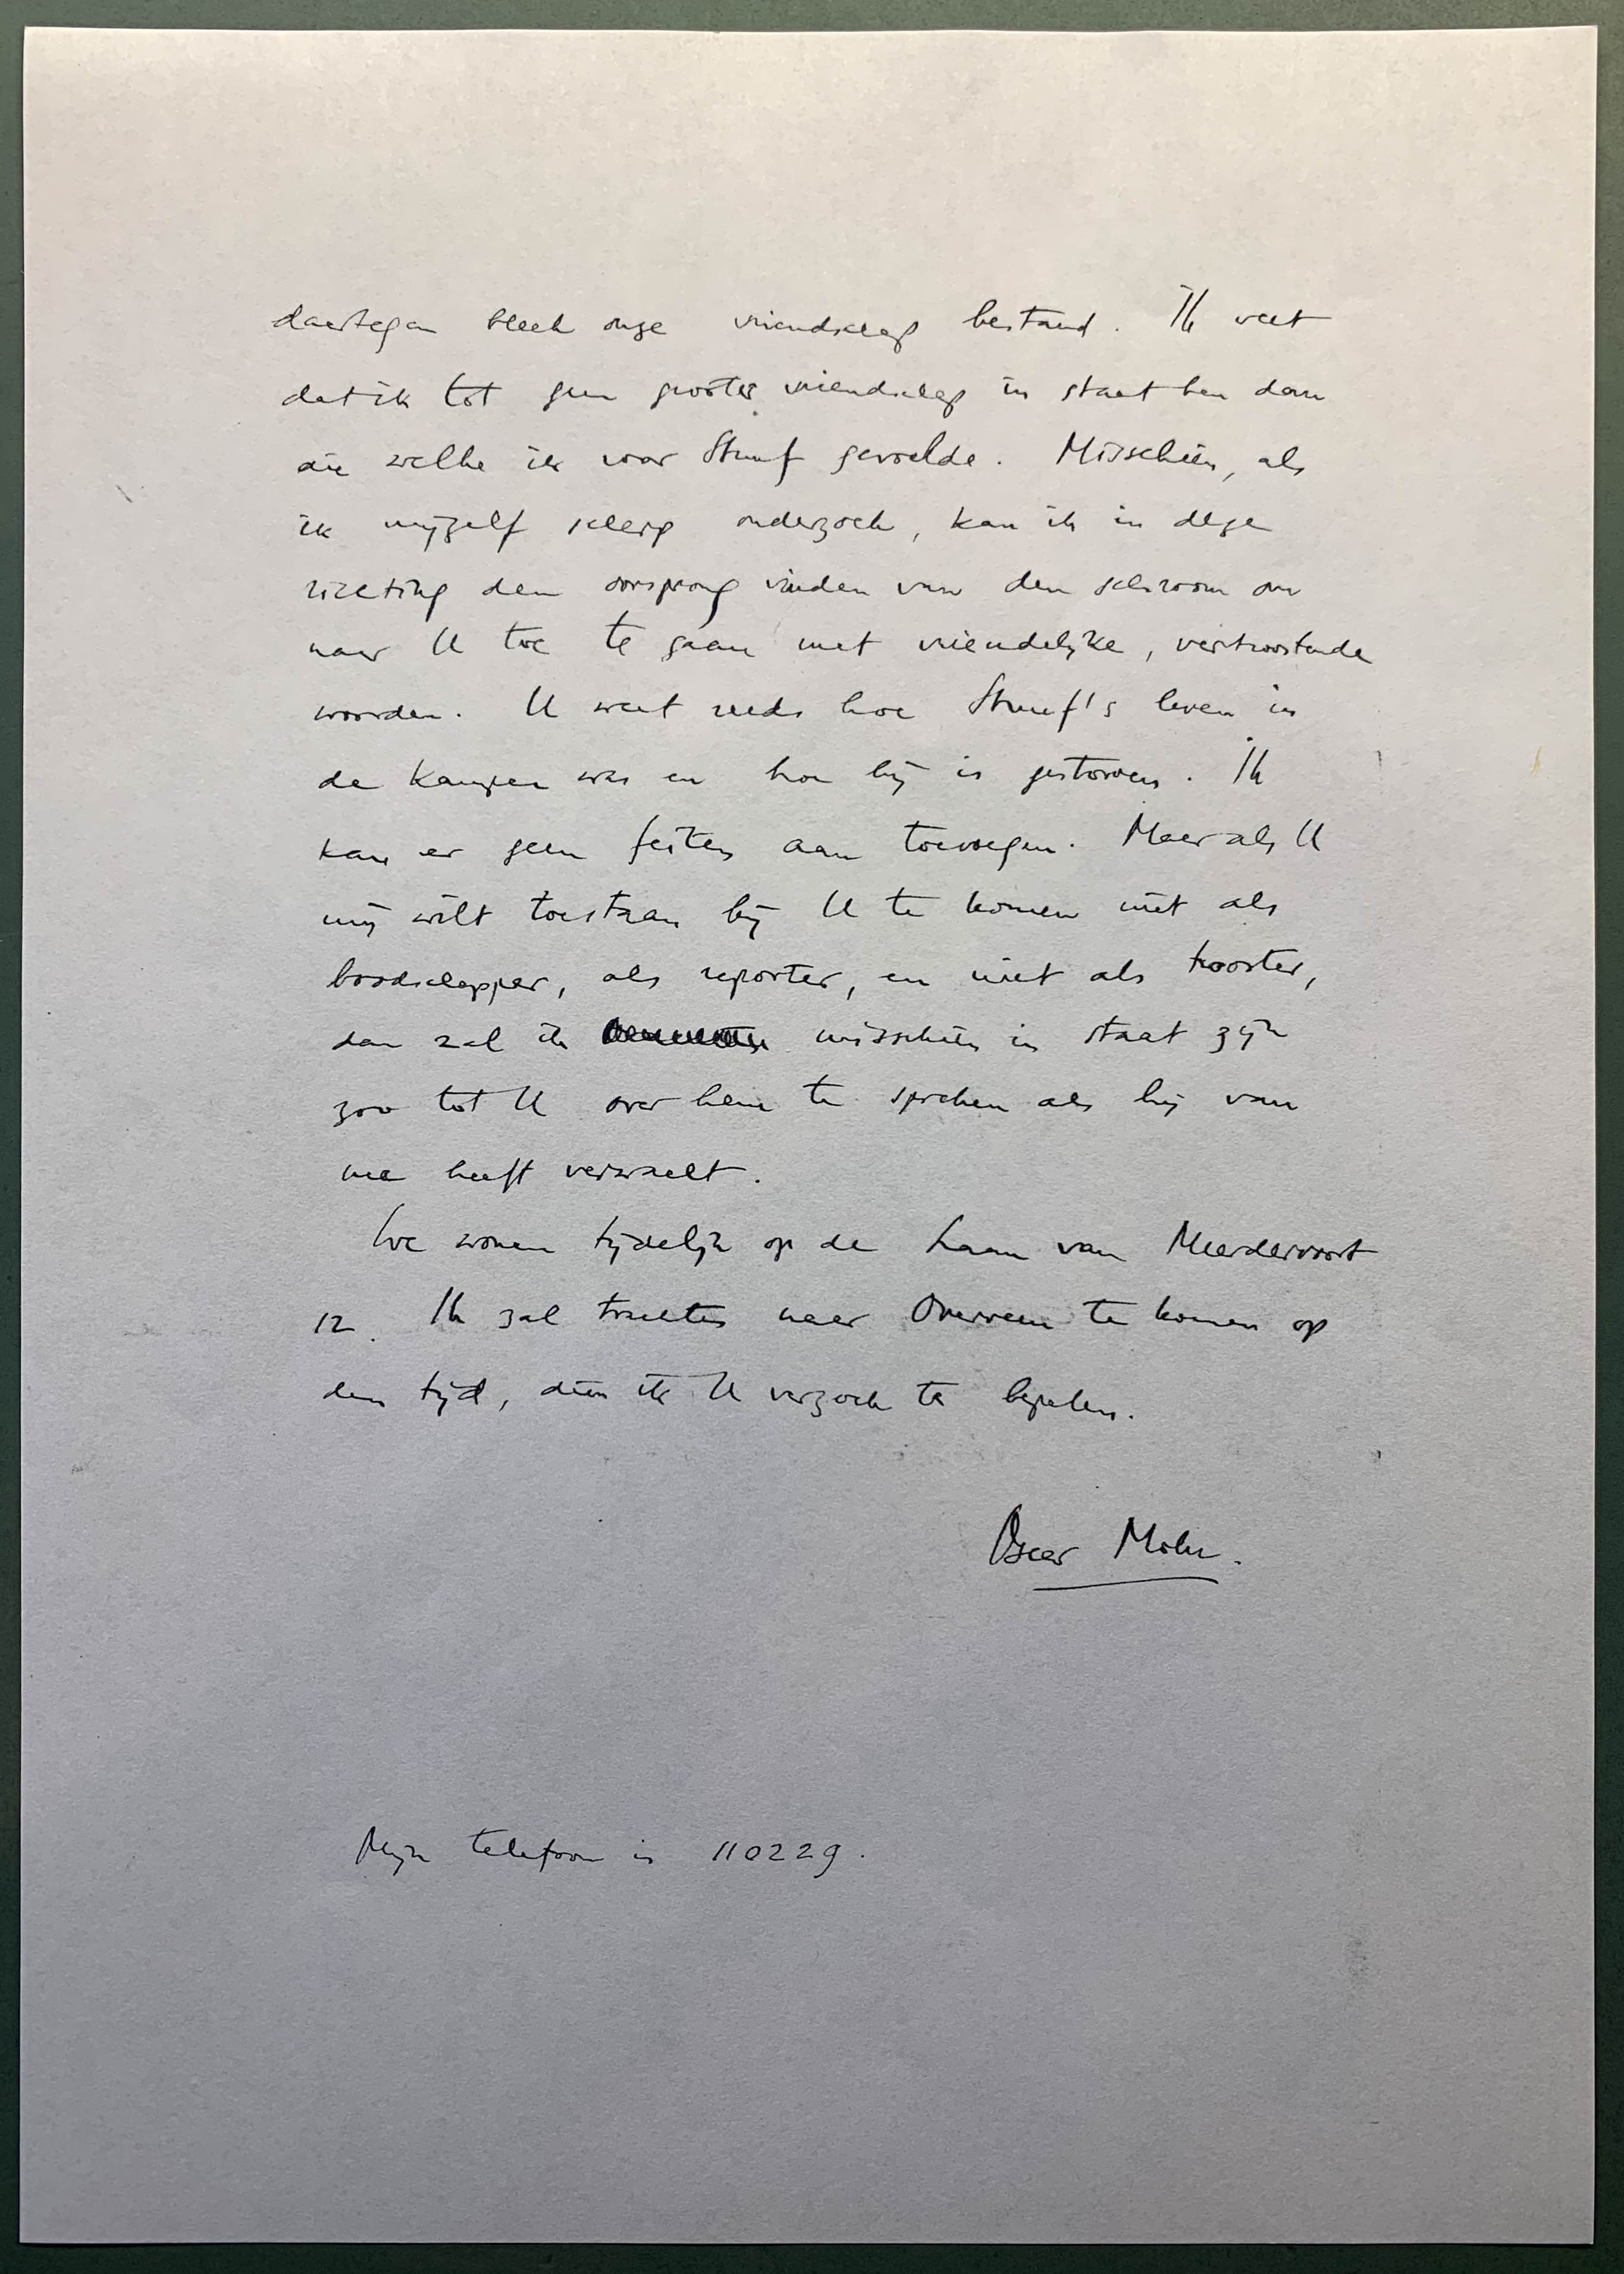 daartegen bleek onze vriendschap bestand. Ik weet
dat ik tot geen grooter vriendschap in staat ben dan
die welke ik voor Stuuf gevoelde. Misschien, als
ik mijzelf scherp onderzoek, kan ik in deze
richting den oorsprong vinden van den schroom om
naar U toe te gaan met vriendelijke, vertroostende
woorden. U weet reeds hoe Stuuf's leven in
de kampen was en hoe hij is gestorven. Ik
kan er geen feiten aan toevoegen. Maar als U
mij wilt toestaan bij U te komen niet als
boodschapper, als reporter, en niet als trooster,
dan zal ik misschien in staat zijn
zoo tot U over hem te spreken als hij van
me heeft verwacht.
We wonen tijdelijk op de Laan van Meerdervoort
12. Ik zal trachten naar Overveen te komen op
den tijd, dien ik U verzoek te bepalen.
Oscar Mohr.
Mijn telefoon is 110229.